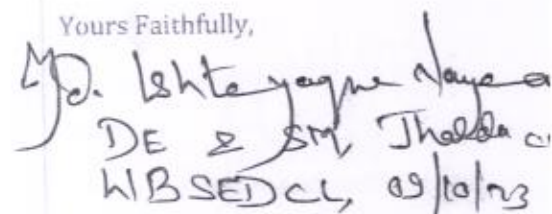 Yours Faithfully,
Md. Ishteyaque
DE & SM, Jhalda
WBSEDCL, 09/10/23